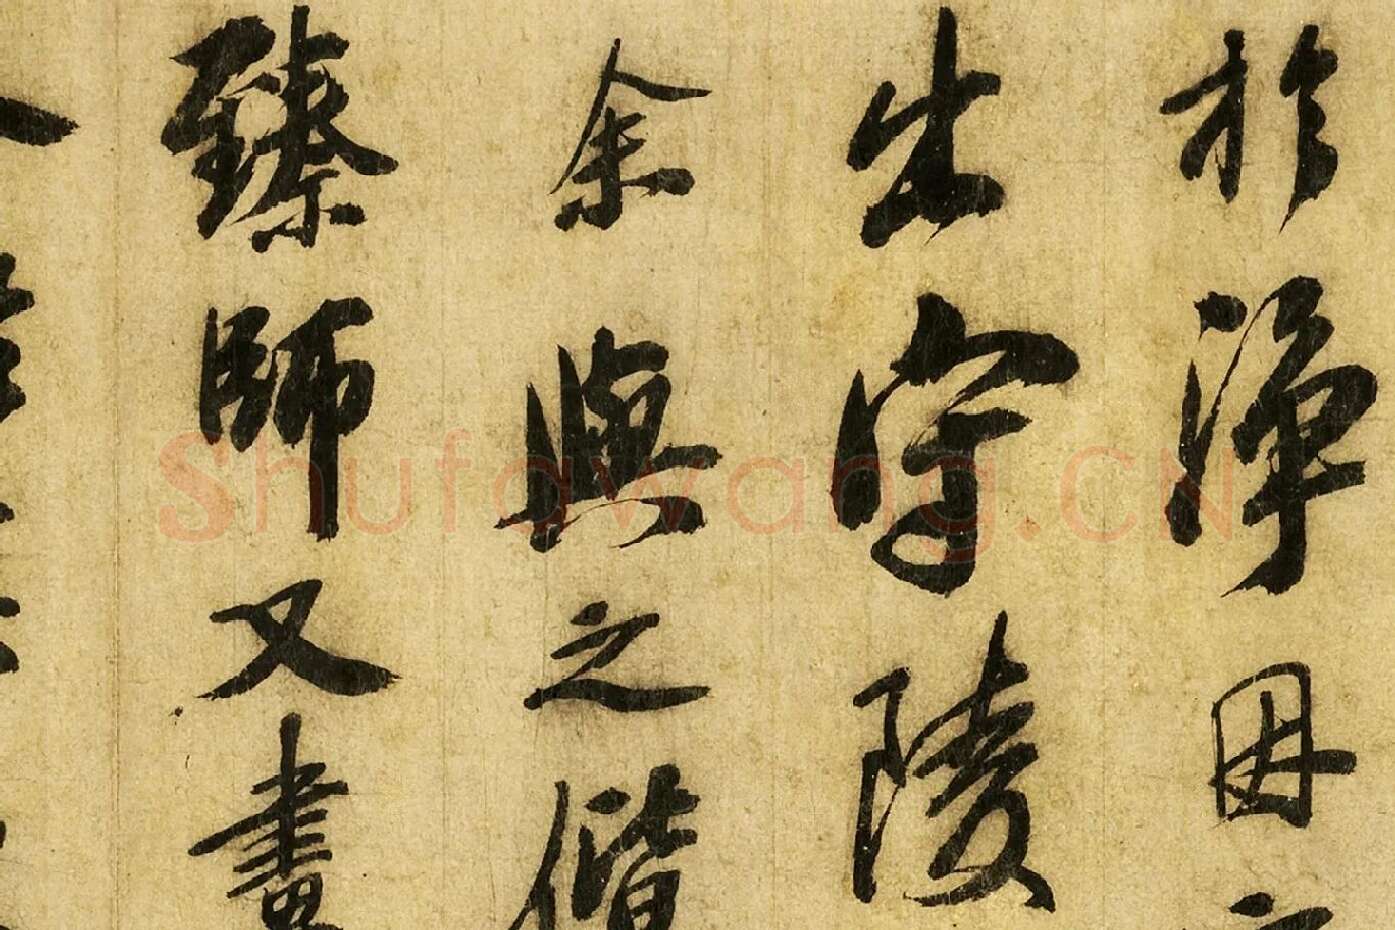 於淨因
出守陵
余與之偕
臻師又畫
Shufawang.CN